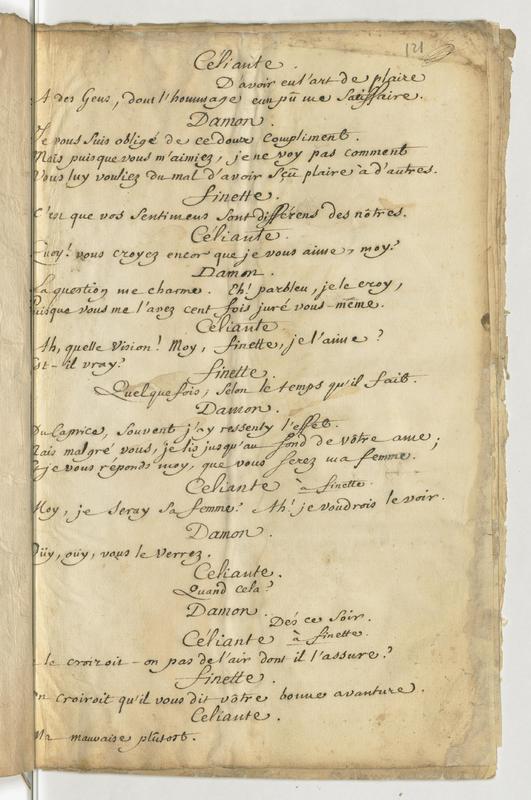 121
Céliante.
D'avoir eu l'art de plaire
A des Gens, dont l'hommage eut pû me Satisfaire.
Damon.
Je vous suis obligé de ce doux compliment.
Mais puisque vous m'aimiez, je ne voy pas comment
Vous luy vouliez du mal d'avoir sçu plaire à d'autres.
finette.
C'est que vos Sentimens sont différens des nôtres.
Céliante.
Quoy! vous croyez encor que je vous aime, moy?
Damon.
La question me charme. Eh! parbleu, je le croy,
Puisque vous me l'avez cent fois juré vous-même.
Céliante
Ah, quelle vision! Moy, finette, je l'aime?
Est-il vray?
finette.
Quelquefois, selon le temps qu'il fait.
Damon.
Du Caprice, souvent j'ay ressenty l'effet.
Mais malgré vous, je lis jusqu'au fond de vôtre ame;
je vous reponds moy, que vous serez ma femme.
Céliante à finette.
Moy, je seray sa femme? Ah! je voudrois le voir.
Damon.
Oüy, oüy, vous le verrez.
Céliante.
Quand cela?
Damon.
Dés ce Soir.
Céliante à finette.
le croiroit-on pas de l'air dont il l'assure?
finette.
on croiroit qu'il vous dit vôtre bonne avanture.
Celiante.
Ma mauvaise plutost.